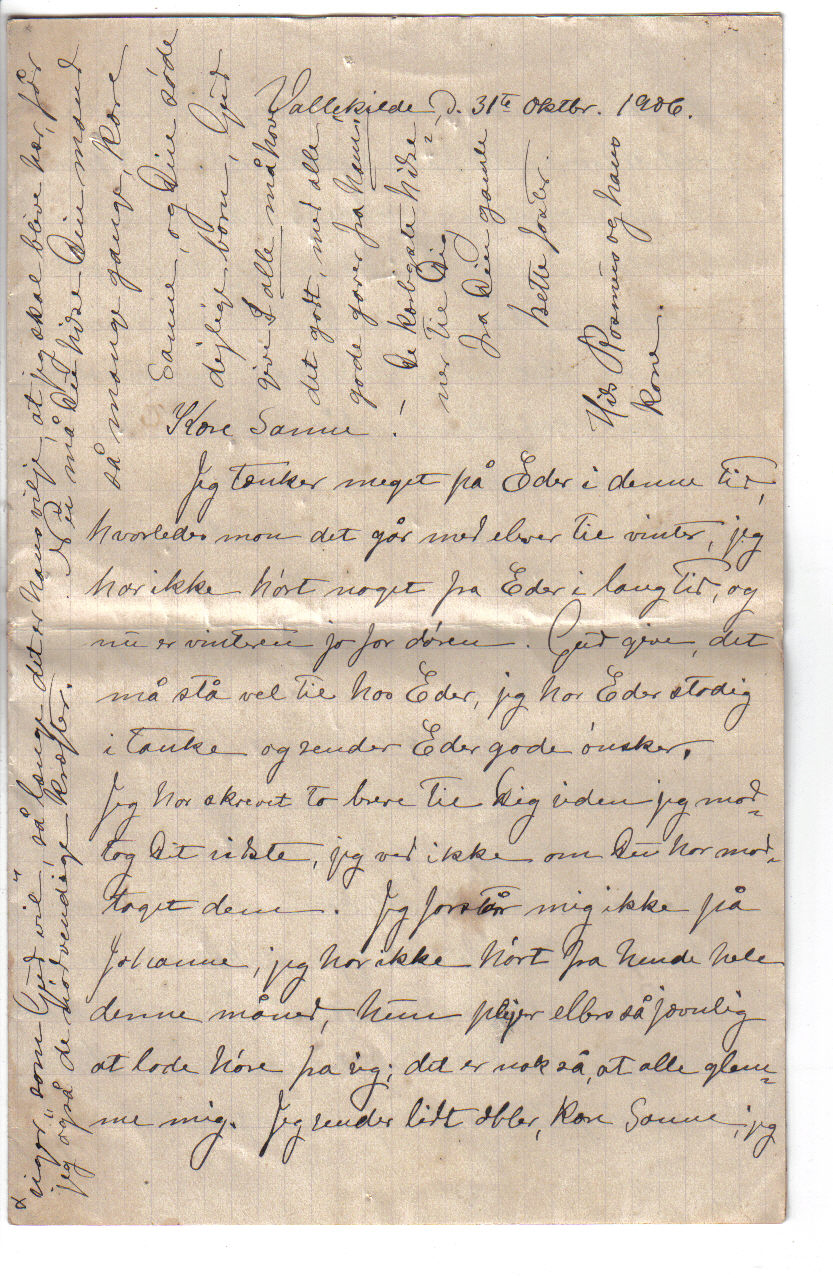 Vallekilde, d. 31te Oktbr. 1906.
Kære Sanne!
Jeg tænker meget på Eder i denne tid,
hvorledes mon det går med elever til vinter, jeg
har ikke hørt noget fra Eder i lang tid, og
nu er vinteren jo for døren. Gud give, det
må stå vel til hos Eder, jeg har Eder stadig
i tanke og sender Eder gode ønsker.
Jeg har skrevet to breve til Dig siden jeg mod=
tog Dit sidste, jeg ved ikke om Du har mod=
taget dem. Jeg forstår mig ikke på
Johanne, jeg har ikke hørt fra hende hele
denne måned, hun plejer ellers så jævnlig
at lade høre fra sig; det er nok så, at alle glem=
me mig. Jeg sender lidt æbler, kære Sanne, jeg
siger, som "Gud vil", så længe det er hans vilje, at jeg skal blive her, får
jeg også "de nødvendige kræfter.
Nu må Du hilse Din mand
så mange gange, kære
Sanne, og Dine søde
dejlige børn, Gud
give I alle må have
det godt, med alle
gode gaver fra ham.
De kærligste hilse=
ner til Dig
fra Din gamle
tette faster.
Hils Rasmus og hans
kone.